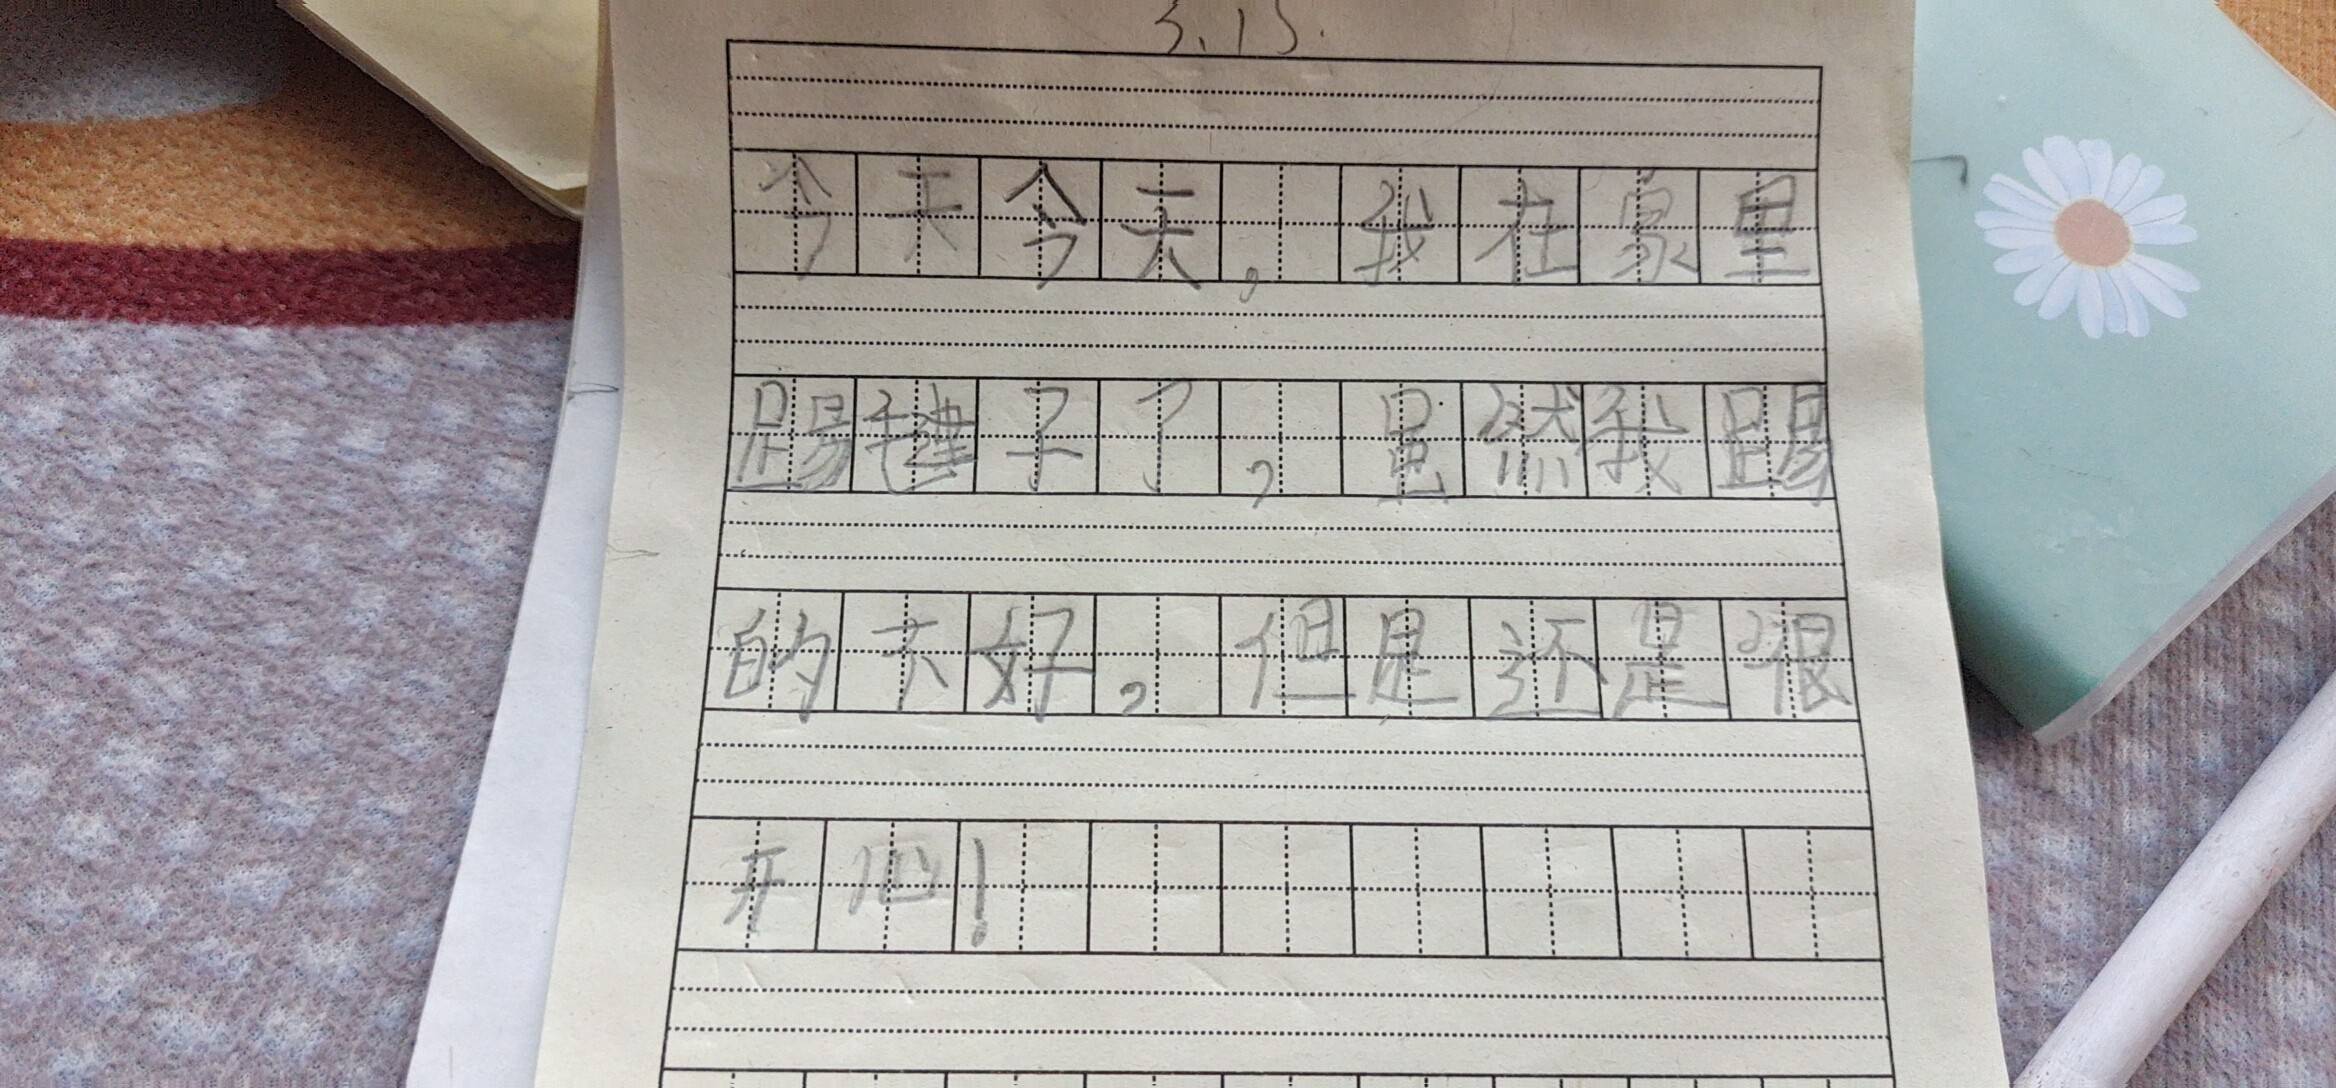 3.15.
今天今天，我在家里
踢毽子了，虽然我踢
的不好，但是还是很
开心！